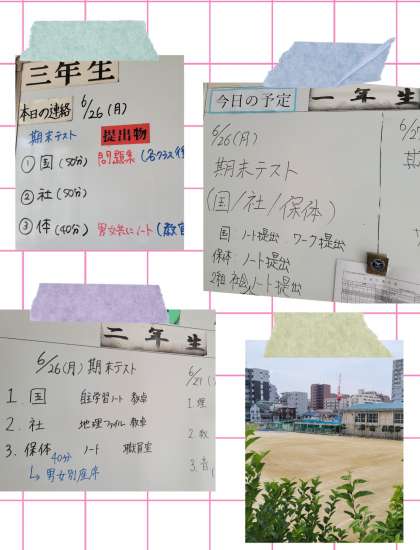 三年生
本日の連絡 6/26(月)
期末テスト 提出物
①国(50分) 問題集(各クラス後
②社(50分)
③体(40分) 男女共にノート(教官
今日の予定 一年生
6/26(月)
期末テスト
(国/社/保体)
国 ノート提出、ワーク提出
保体 ノート提出
2組 社会ノート提出
6/2
期
二年生
6/26(月)期末テスト
1. 国 自主学習ノート 教卓
2. 社 地理ファイル 教卓
3. 保体 40分 ノート 職員室
↳男女別座席
6/27(
1. 理
2. 数
3. 音